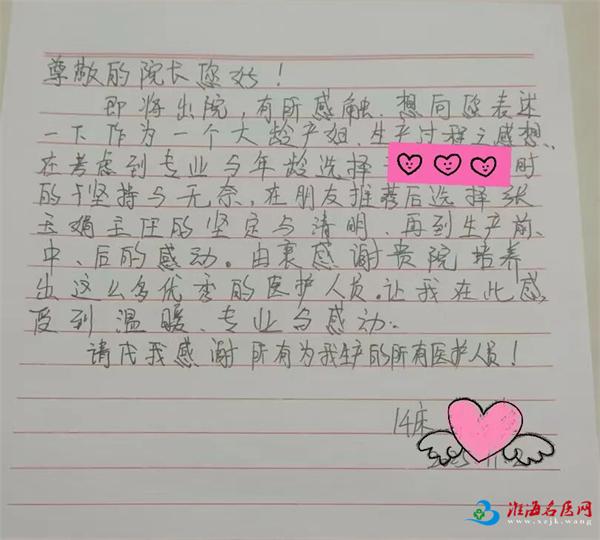 尊敬的院长您好！
即将出院，有所感触，想向您表述
一下作为一个大龄产妇，生产过程之感想。
在考虑到专业与年龄选择 时
的坚持与无奈，在朋友推荐后选择张
玉娟主任的坚定与清明，再到生产前、
中、后的感动。由衷感谢贵院培养
出这么多优秀的医护人员。让我在此感
受到温暖、专业与感动。
请代我感谢所有为我生产的所有医护人员！
14床
淮海名医网
www.xzjk.wang